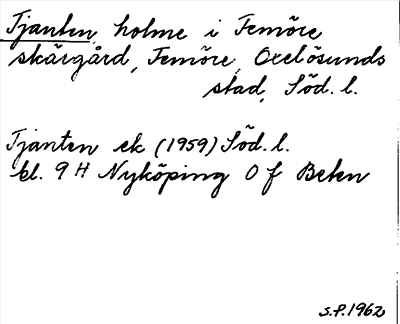 Tjanten, holme i Femöre
skärgård, Femöre, Oxelösunds
stad, Söd. l.
Tjanten ek (1959) Söd. l.
bl. 9 H Nyköping O f Beten
S.P. 1962